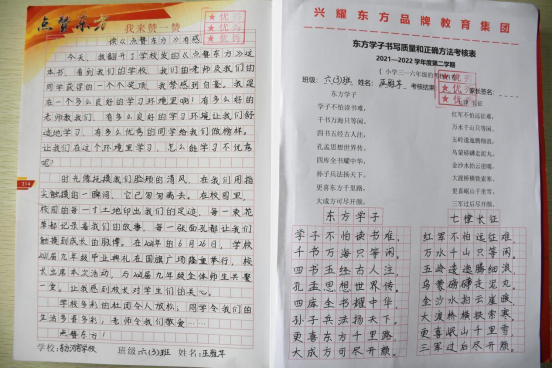 点赞东方
我来赞一赞
优秀
读《点赞东方》有感
今天,我翻开了学校发的《点赞东方》这
本书,看到我们的学校,我们的老师及我们的
同学获得的一个个奖项,我梦想到自豪。我是
在一个多么良好的学习环境里啊!有多么好的
老师教我们,有多么良好的学习环境让我们舒
适地学习,有多么优秀的同学给我们做榜样。
让我们在这个环境里学习,怎么能学习不优秀
呢?
时光像抚摸我们脸颊的清风,在我们用指
尖触摸的一瞬间,它已匆匆离去。在校园里,
校园的每一寸土地印出我们的足迹,每一束花
草都记录着我们的故事,每一张面孔都让我们
触摸到成长的脉搏。在6月26日,学校
九年级毕业典礼在国旗广场隆重举行,校
长出席本次活动,与九年级全体师生共聚
一堂。让我感到校长对学生们的关心。
学校多彩的校园令人放松,同学令我们的
生活多喜多彩,老师令我们敬爱……
点赞东方!
314
学校:东方学校 班级 六(3)班 姓名:
兴耀东方品牌教育集团
东方学子书写质量和正确方法考核表
2021—2022学年度第二学期
(小学三—六年级的
班级:六(3)班 姓名: 考核结果: 家长签名:
优秀
东方学子
学子不怕读书难,
千书万海只等闲。
四书五经古人注,
孔孟思想世界传。
四库全书耀中华,
孙子兵法扬天下。
更喜东方千里路,
大成方可尽开颜。
七律 长征
红军不怕远征难,
万水千山只等闲。
五岭逶迤腾细浪,
乌蒙磅礴走泥丸。
金沙水拍云崖暖,
大渡桥横铁索寒。
更喜岷山千里雪,
三军过后尽开颜。
东方学子
学子不怕读书难,
千书万海只等闲。
四书五经古人注,
孔孟思想世界传。
四库全书耀中华,
孙子兵法扬天下。
更喜东方千里路,
大成方可尽开颜。
七律长征
红军不怕远征难,
万水千山只等闲。
五岭逶迤腾细浪,
乌蒙磅礴走泥丸。
金沙水拍云崖暖,
大渡桥横铁索寒。
更喜岷山千里雪,
三军过后尽开颜。